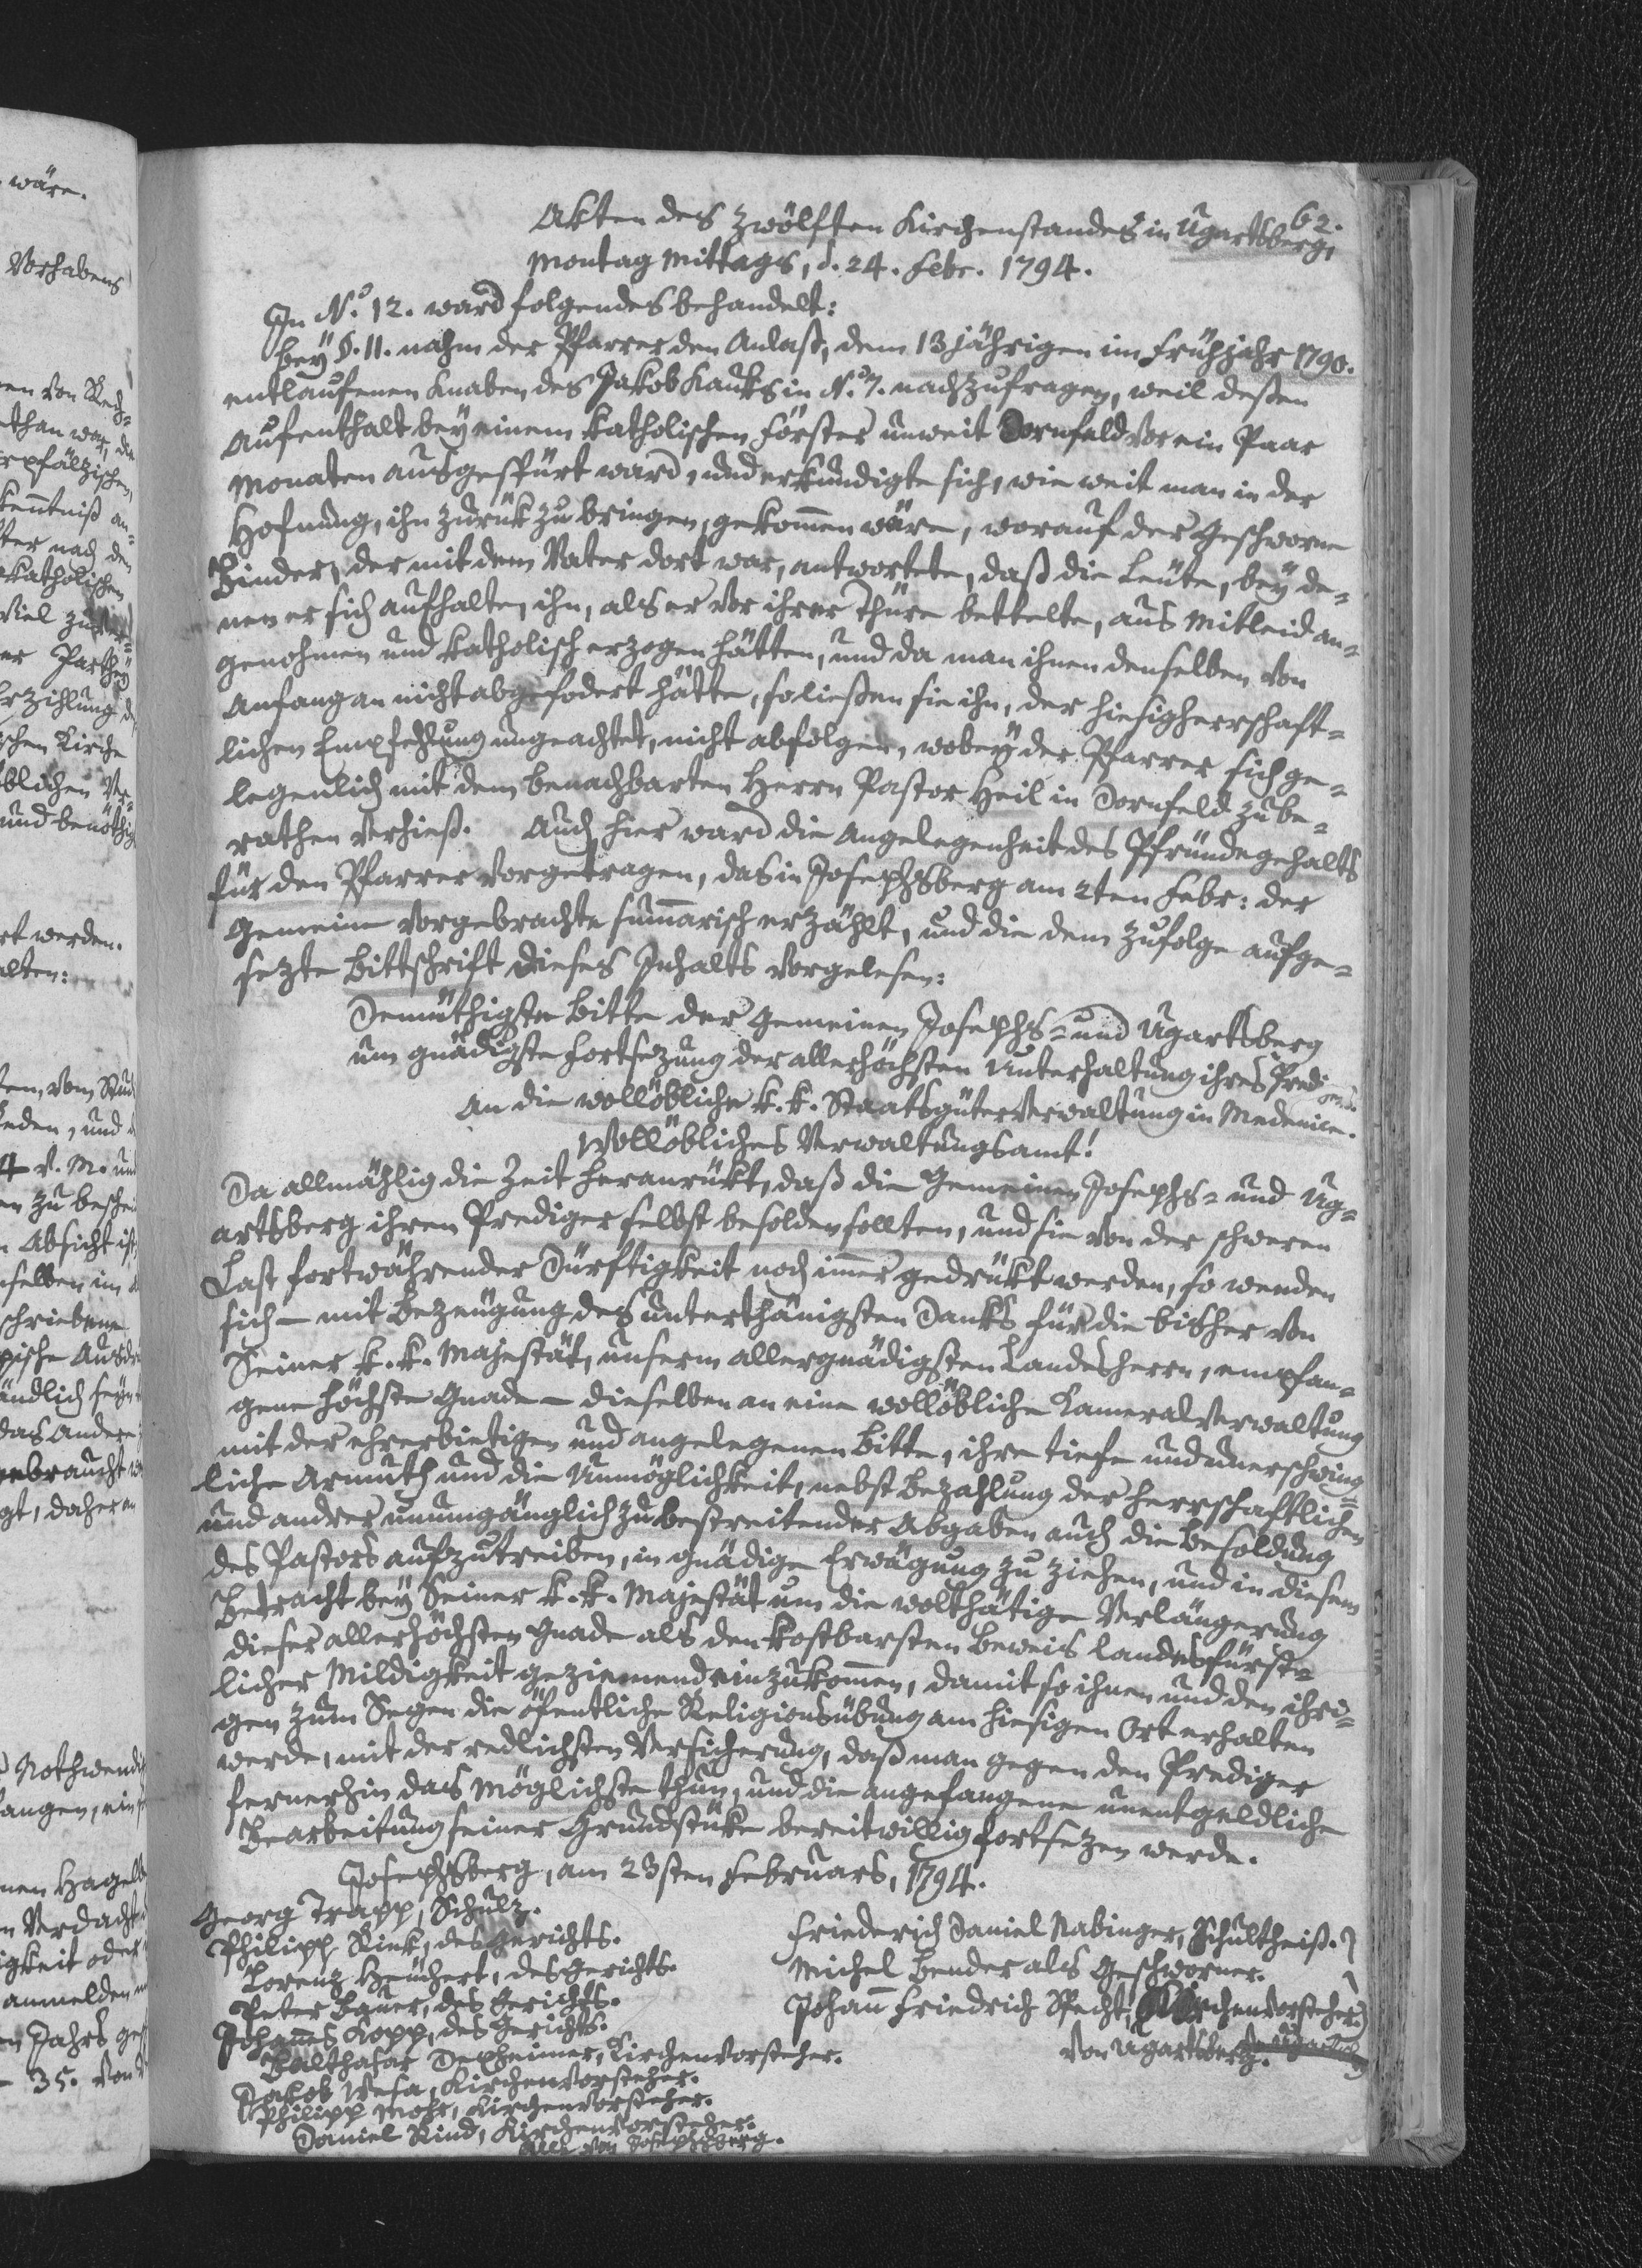 62.
Akten des zwölften Kirchenstandes in Ugartsberg,
Montag Mittags, d. 24. Febr. 1794.
In N.o 12. ward folgendes behandelt:
bey §. 11. nahm der Pfarrer den Anlaß, dem 13jährigen im Frühjahr 1790.
entlaufenen Knaben des Jakob Kauks in N.o 7. nachzufragen, weil deßen
Aufenthalt bey einem katholischen Förster unweit Dornfeld vor ein Paar
Monaten ausgespürt ward, und erkundigte sich, wie weit man in der
Hofnung, ihn zurük zu bringen, gekom̄en wäre, worauf der Geschworne
Binder, der mit dem Vater dort war, antwortete, daß die Leute, bey de-
nen er sich aufhalten, ihn, als er vor ihrer Thüre bettelte, aus Mitleid an-
genohmen und katholisch erzogen hätten, und da man ihnen denselben von
Anfang an nicht abgefodert hätte, so ließen sie ihn, der hiesigherrschaft-
lichen Empfehlung ungeachtet, nicht abfolgen, wobey der Pfarrer sich ge-
legenlich mit dem benachbarten Herrn Pastor Heil in Dornfeld zu be-
rathen verhieß. Auch hier ward die Angelegenheit des Pfründegehalts
für den Pfarrer vorgetragen, das in Josephsberg am 2ten Febr: der
Gemeine vorgebrachte sum̄arisch erzählt, und die dem zufolge aufge-
sezte Bittschrift dieses Inhalts vorgelesen:
Demüthigste Bitte der Gemeinen Josephs- und Ugartsberg
um gnädigste Fortsezung der allerhöchsten Unterhaltung ihres Predigers.
An die wollöbliche k. k. Staatsgüterverwaltung in Medenice.
Wollöbliches Verwaltungsamt!
Da allmählig die Zeit heranrükt, daß die Gemeinen Josephs- und Ug-
artsberg ihren Prediger selbst besolden sollten, und sie von der schweren
Last fortwährender Dürftigkeit noch im̄er gedrükt werden, so wenden
sich - mit Bezeugung des unterthänigsten Danks für die bisher von
Seiner k. k. Majestät, unserm allergnädigsten Landesherrn, empfan-
gene höchste Gnade - dieselben an eine wollöbliche Kameralverwaltung
mit der ehrerbietigen und angelegenen Bitte, ihre tiefe und unerschwing-
liche Armuth und die Unmöglichkeit, nebst Bezahlung der herrschaftlichen
und andrer unumgänglich zu bestreitender Abgaben auch die Besoldung
des Pastors aufzutreiben, in gnädige Erwägung zu ziehen, und in diesem
Betracht bey Seiner k. k. Majestät um die wolthätige Verlängerung
dieser allerhöchsten Gnade als den kostbarsten Beweis landesfürst-
licher Mildigkeit geziemend einzukom̄en, damit so ihnen und den ihri-
gen zum Segen die öfentliche Religionsübung am hiesigen Ort erhalten
werde, mit der redlichsten Versicherung, daß man gegen den Prediger
fernerhin das möglichste thun, und die angefangene unentgeldliche
Bearbeitung seiner Grundstüke bereitwillig fortsezen werde.
Josephsberg, am 23sten Februars, 1794.
Georg Trapp, Schulz.
Philipp Rink, des Gerichts.
Lorenz Heuchert, des Gerichts.
Peter Bauer, des Gerichts.
Johan̄es Kopp, des Gerichts.
Balthasar Dexheimer, Kirchenvorsteher.
Jakob Wesa, Kirchenvorsteher.
Philipp Mohr, Kirchenvorsteher.
Daniel Rind, Kirchenvorsteher.
Alle von Josephsberg.
Friederich Daniel Nabinger, Schultheiß.
Michel Bender als Geschworner.
Johan̄ Friedrich Specht, Kirchenvorsteher.
von Ugartsberg.